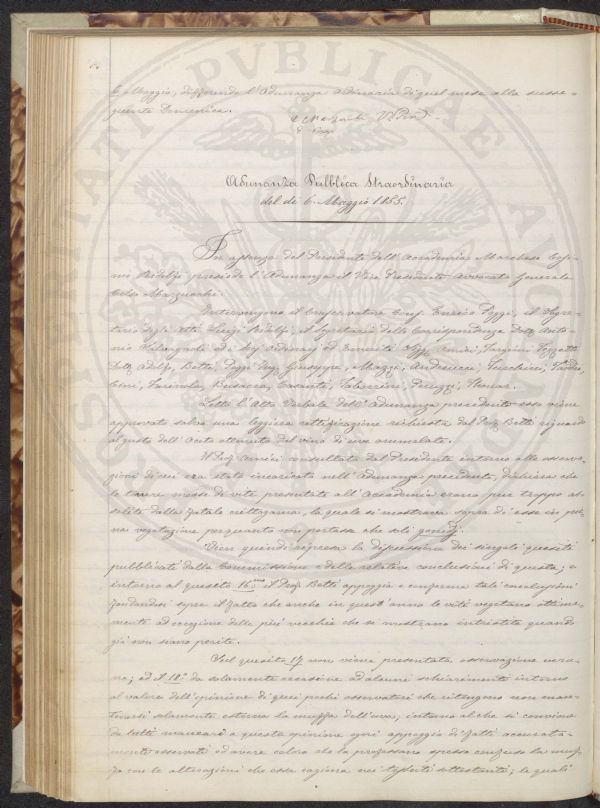 6. Maggio, differendo l'Adunanza ordinaria di quel mese alla susse-
guente Domenica.
Adunanza Pubblica Straordinaria
del dì 6. Maggio 1855.
In assenza del Presidente dell'Accademia Marchese Cosi-
mo Ridolfi presiede l'Adunanza il Vice Presidente Avvocato Generale
Celso Marzucchi.
Intervengono il Conservatore Cons. Enrico Poggi, il Segre-
tario degli Atti Luigi Ridolfi, il Segretario delle Corrispondenze Dott. Anto-
nio Salvagnoli ed i Soci Ordinarj ed Emeriti Proff. Amici, Targioni Tozzetti
Dott. Adolfo, Betti, Poggi Ing. Giuseppe, Mazzi, Andreucci, Cucchiari, Taddei,
Cini, Farinola, Busacca, Peruzzi, Thouar.
Letto l'Atto Verbale dell'Adunanza precedente esso viene
approvato salvo una leggiera rettificazione richiesta dal Prof. Betti riguardo
al gusto dell'Aceto ottenuto dal vino di uve ammalate.
Il Prof. Amici consultato dal Presidente intorno alle osserva-
zioni di cui era stato incaricato nell'Adunanza precedente, dichiara che
le tenere messe di vite presentate all'Accademia erano pur troppo as-
salite dalla fatale crittogama, la quale si mostrava sopra di esse in pie-
na vegetazione perquanto non portasse che soli gonidj.
Vien quindi ripresa la discussione dei singoli quesiti
pubblicati dalla Commissione e delle relative conclusioni di questa; e
intorno al quesito 16mo il Prof. Betti appoggia e conferma tali conclusioni
fondandosi sopra il fatto che anche in quest'anno le viti vegetano ottima-
mente ad eccezione delle più vecchie che si mostrano intristite quando
già non siano perite.
Sul quesito 17 non viene presentata osservazione veru-
na; ed il 18.° dà solamente occasione ad alcuni schiarimenti intorno
al valore dell'opinione di quei pochi osservatori che ritengono non mani-
festarsi solamente esterna la muffa dell'uva, intorno al che si conviene
da tutti mancare a questa opinione ogni appoggio di fatti accurata-
mente osservati ed avere coloro che la professano spesso confuso la muf-
fa con le alterazioni che essa cagiona nei tessuti sottostanti; le quali